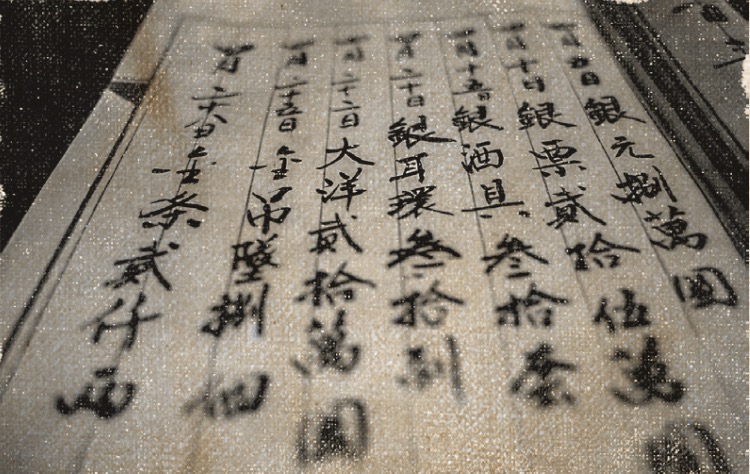 一月五日銀元捌萬圓
一月十日銀票貳拾伍萬圓
一月十五日銀酒具叁拾套
一月二十日銀耳環叁拾副
一月二十二日大洋貳拾萬圓
一月二十五日金吊墜捌個
一月二十八日金条貳仟両